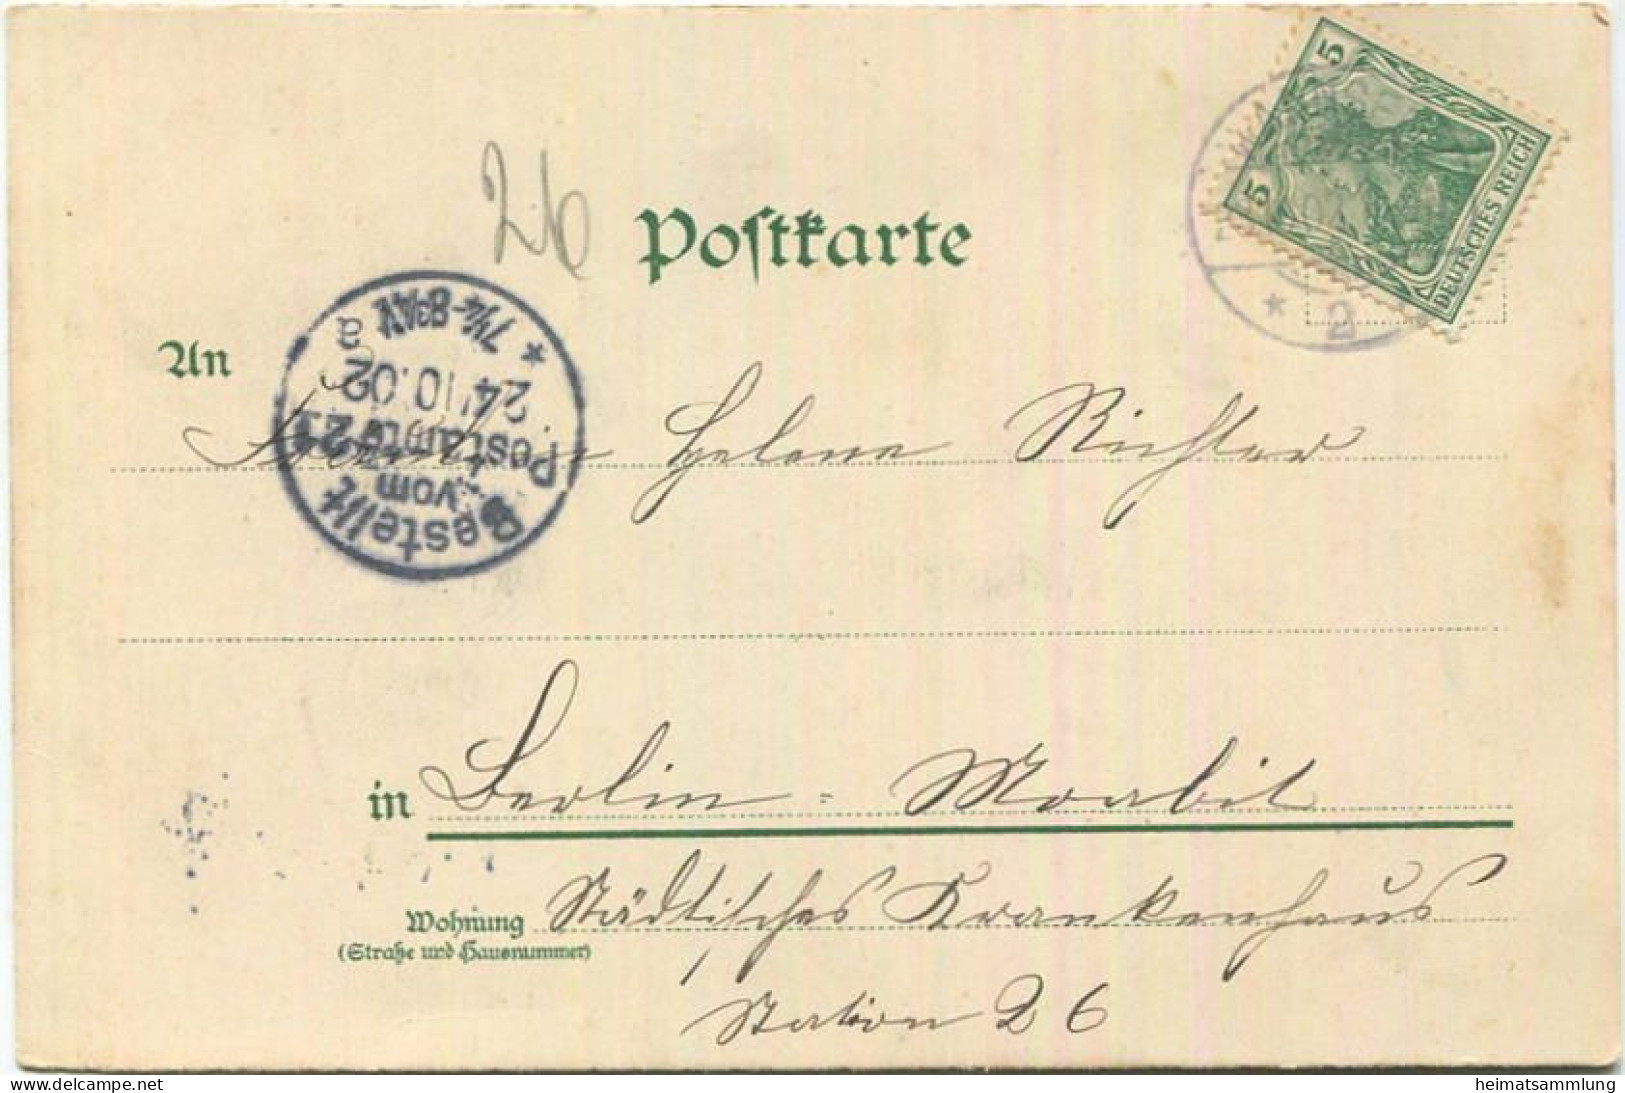 26
Postkarte
5
5
DEUTSCHES REICH
* 2
An
Fräulein Helene Richter
Bestellt
vom
Postamte 21
24.10.02
* 7¼-8¼V. a
in Berlin = Moabit
Wohnung Städtisches Krankenhaus
(Straße und Hausnummer)
Station 26
heimatsammlung